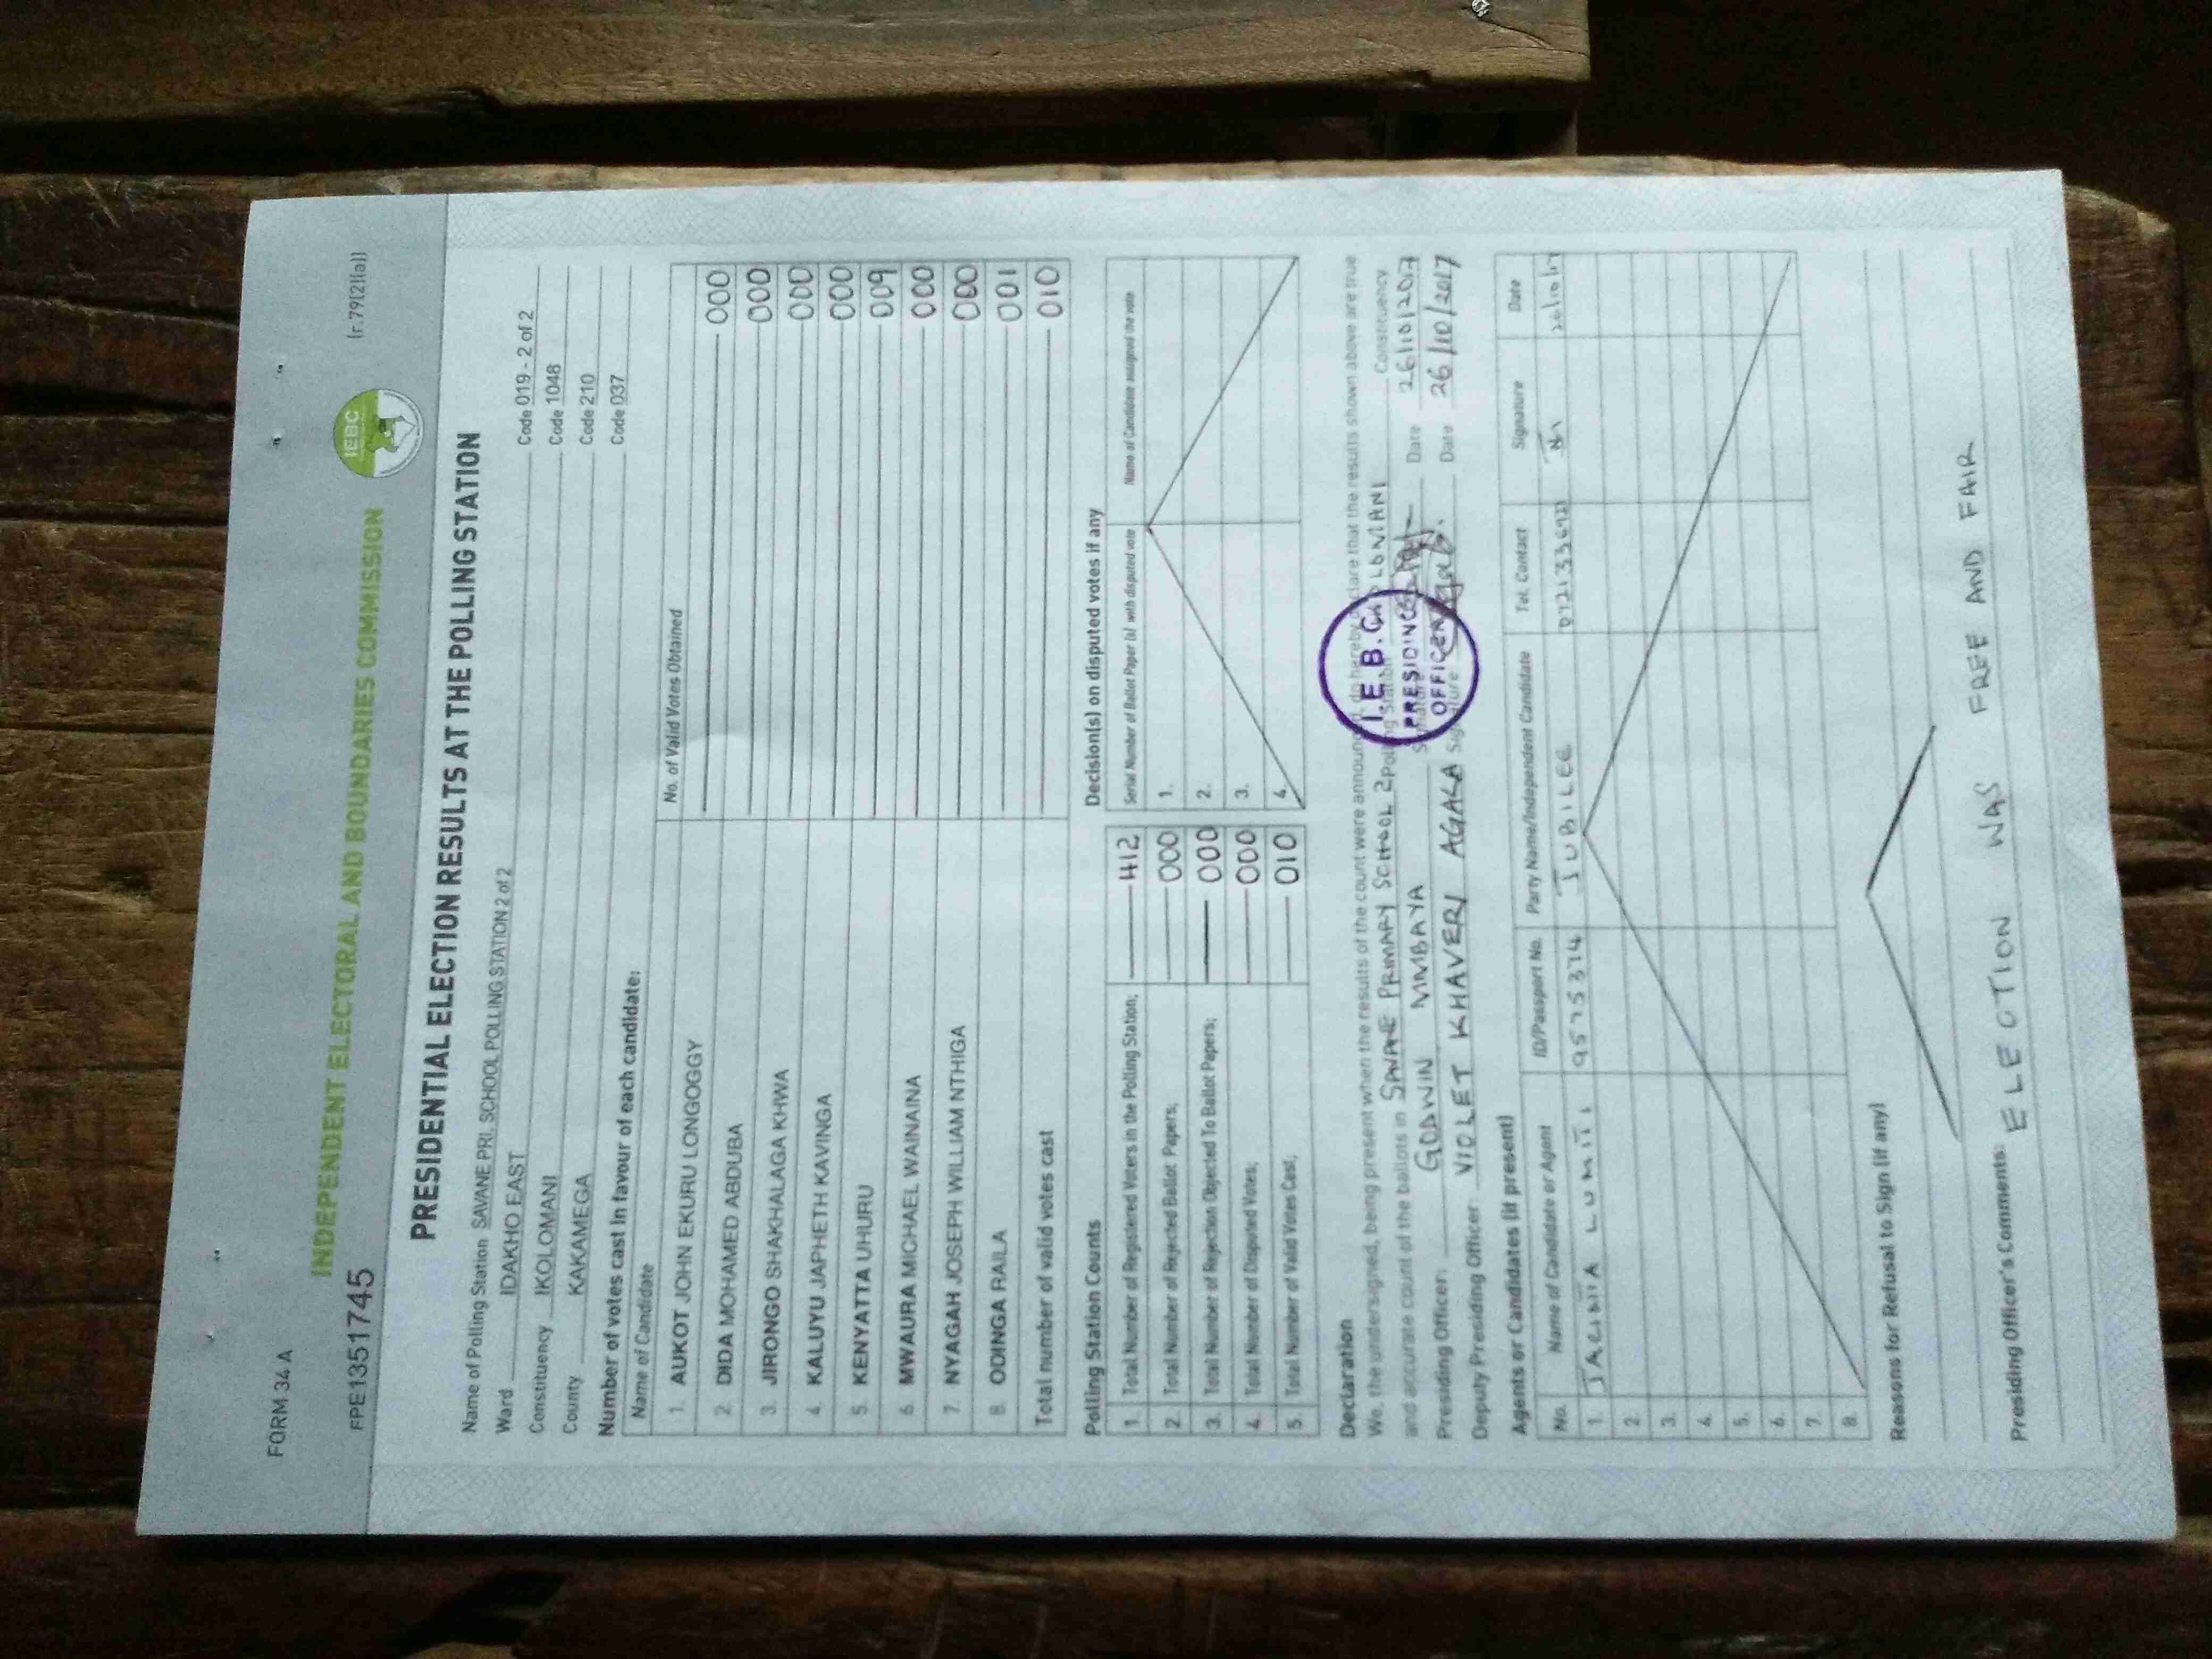 FORM 34 A
(r.79(2)(a))
INDEPENDENT ELECTORAL AND BOUNDARIES COMMISSION
IEBC
FPE1351745
PRESIDENTIAL ELECTION RESULTS AT THE POLLING STATION
Name of Polling Station SAVANE PRI. SCHOOL POLLING STATION 2 of 2 Code 019 - 2 of 2
Ward IDAKHO EAST Code 1048
Constituency IKOLOMANI Code 210
County KAKAMEGA Code 037
Number of votes cast in favour of each candidate:
Name of Candidate No. of Valid Votes Obtained
1. AUKOT JOHN EKURU LONGOGGY 000
2. DIDA MOHAMED ABDUBA 000
3. JIRONGO SHAKHALAGA KHWA 000
4. KALUYU JAPHETH KAVINGA 000
5. KENYATTA UHURU 009
6. MWAURA MICHAEL WAINAINA 000
7. NYAGAH JOSEPH WILLIAM NTHIGA 000
8. ODINGA RAILA 001
Total number of valid votes cast 010
Polling Station Counts
1. Total Number of Registered Voters in the Polling Station; 412
2. Total Number of Rejected Ballot Papers; 000
3. Total Number of Rejection Objected To Ballot Papers; 000
4. Total Number of Disputed Votes; 000
5. Total Number of Valid Votes Cast; 010
Decision(s) on disputed votes if any
Serial Number of Ballot Paper (s) with disputed vote Name of Candidate assigned the vote
1.
2.
3.
4.
Declaration
We, the undersigned, being present when the results of the count were announced, do hereby declare that the results shown above are true
and accurate count of the ballots in SAVANE PRIMARY SCHOOL 2 Polling Station Constituency
Presiding Officer: GODWIN MMBAYA Signature Date 26/10/2017
Deputy Presiding Officer: VIOLET KHAVERI AGALA Signature Date 26/10/2017
I.E.B.C.
PRESIDING
OFFICER
Agents or Candidates (if present)
No. Name of Candidate or Agent ID/Passport No. Party Name/Independent Candidate Tel. Contact Signature Date
1. 9575374 JUBILEE 26/10/17
2.
3.
4.
5.
6.
7.
8.
Reasons for Refusal to Sign (if any)
Presiding Officer's Comments: ELECTION WAS FREE AND FAIR